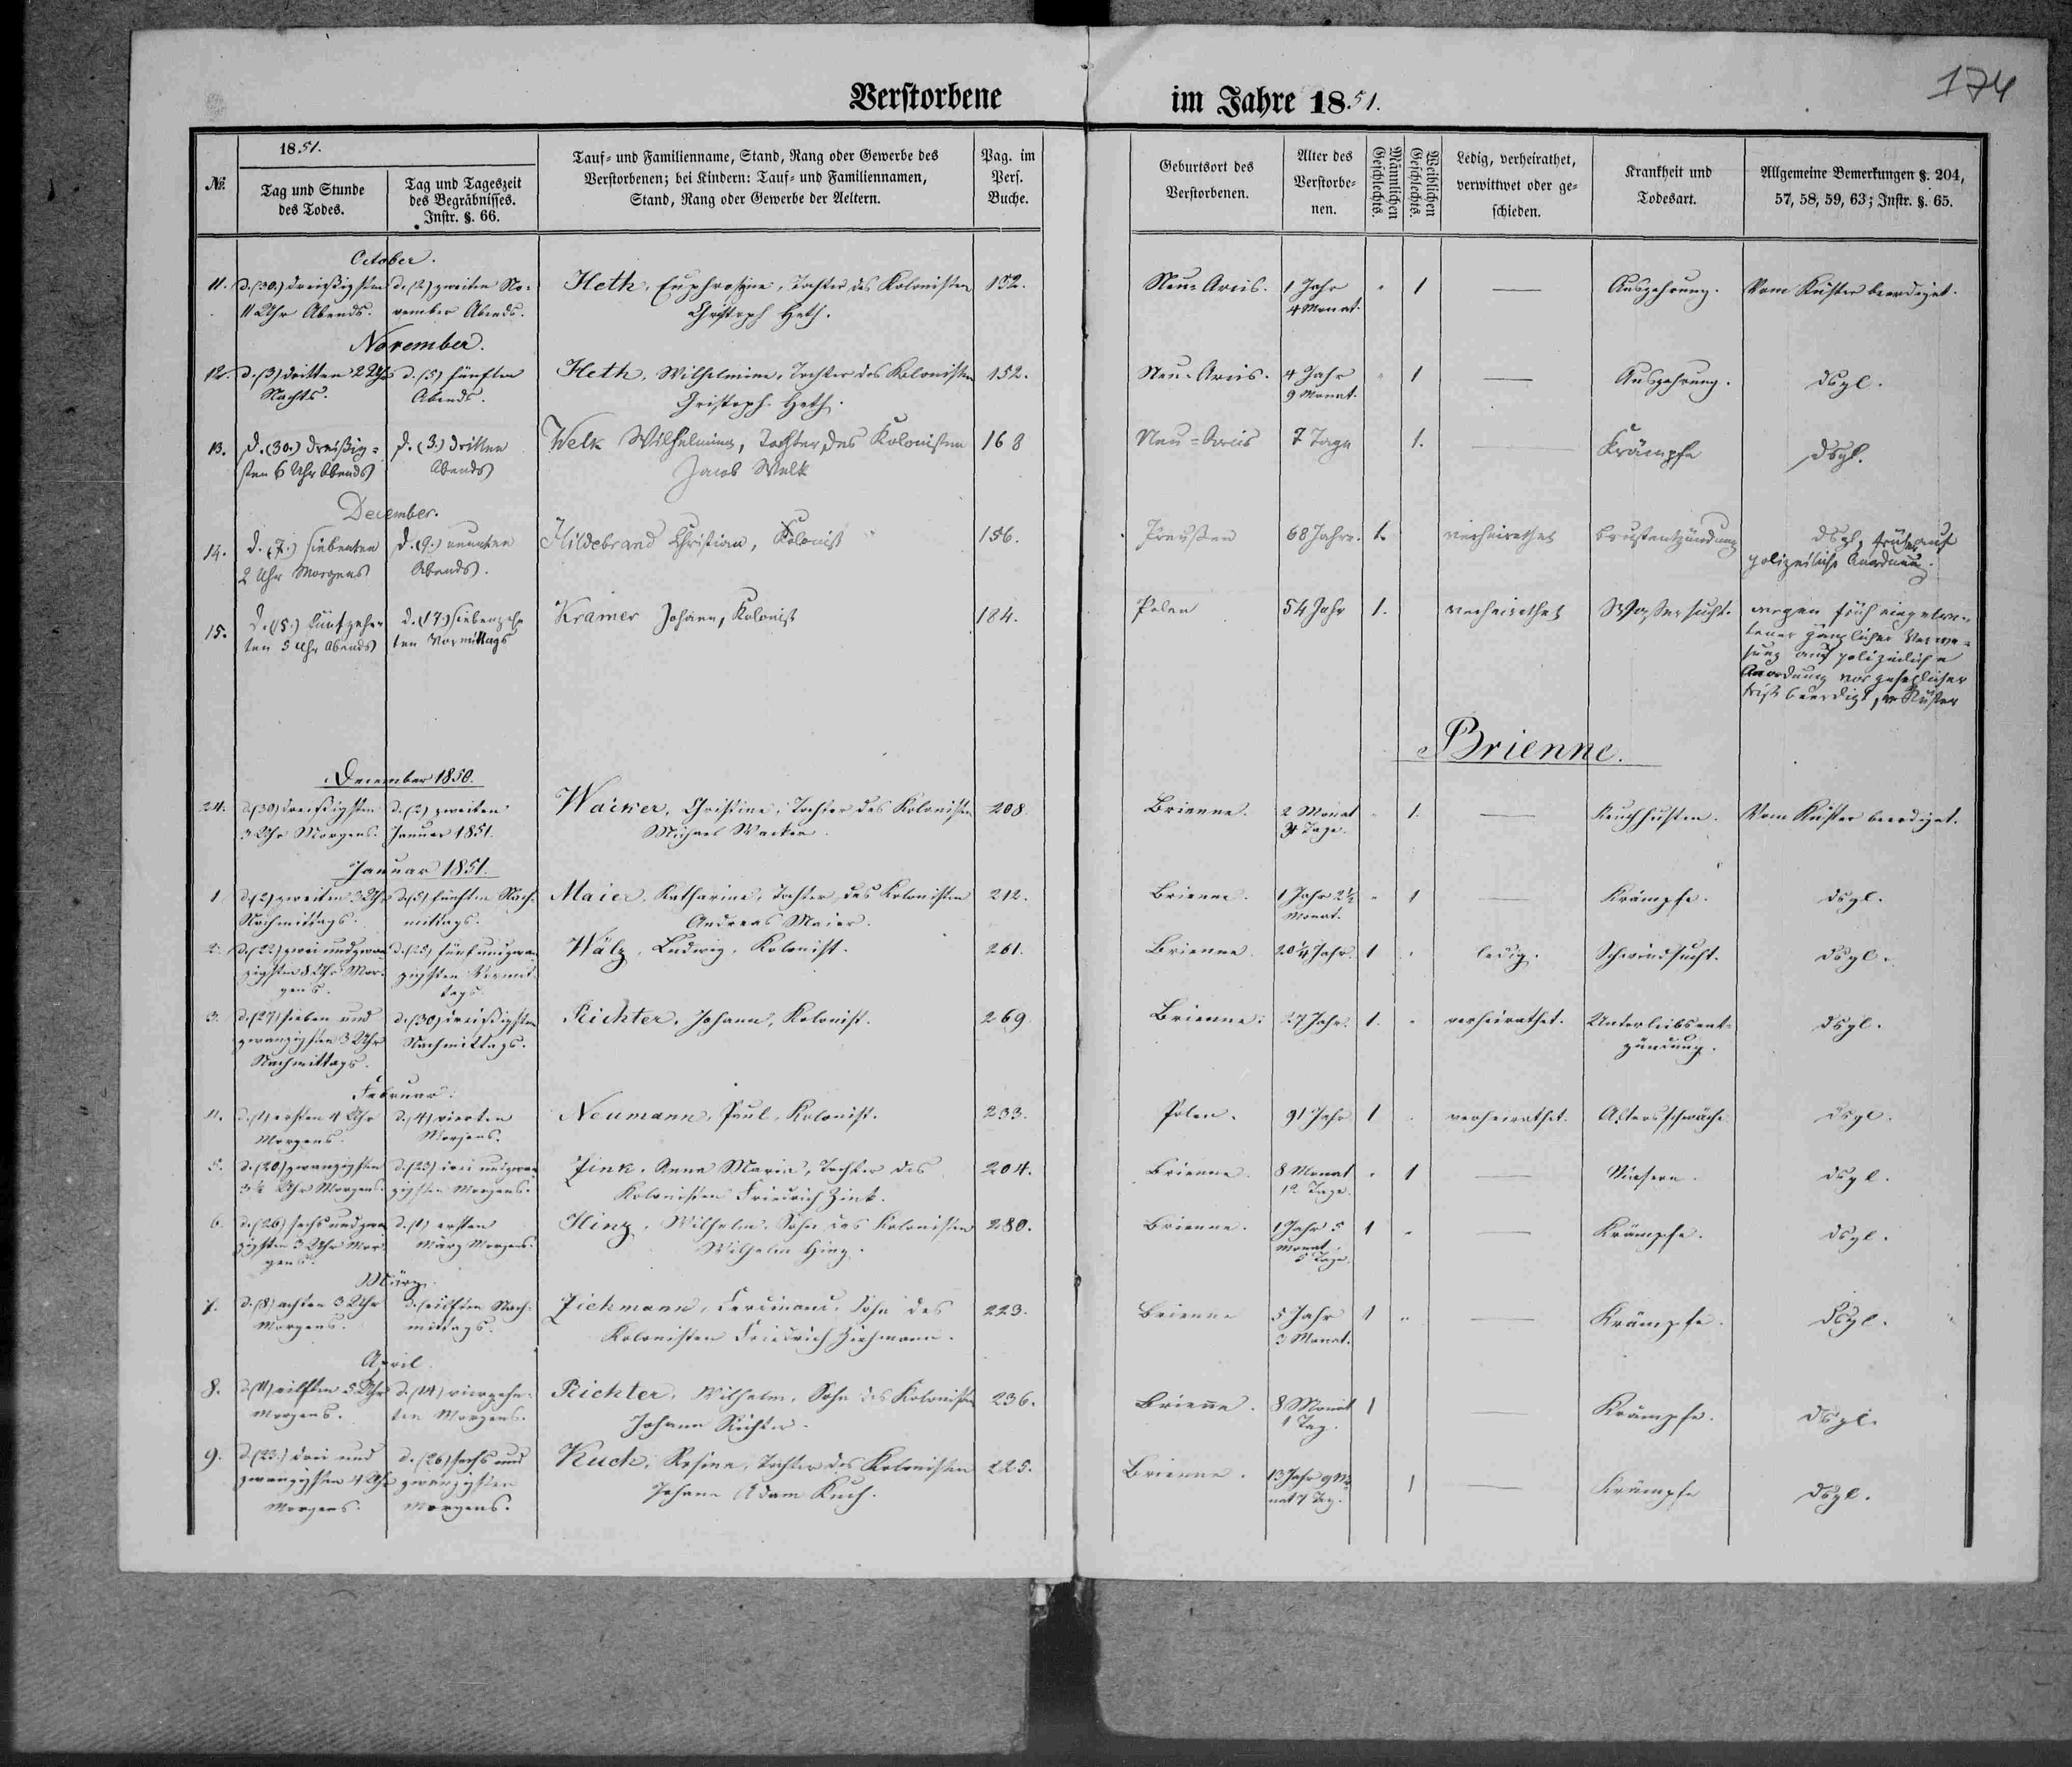 174
Verstorbene im Jahre 18.51.
№.
18.51.
Tag und Stunde
des Todes.
Tag und Tageszeit
des Begräbnisses.
Instr. §. 66.
Tauf- und Familienname, Stand, Rang oder Gewerbe des
Verstorbenen; bei Kindern: Tauf- und Familiennamen,
Stand, Rang oder Gewerbe der Aeltern.
Pag. im
Pers.
Buche.
Geburtsort des
Verstorbenen.
Alter des
Verstorbe-
nen.
Männlichen
Geschlechts.
Weiblichen
Geschlechts.
Ledig, verheirathet,
verwittwet oder ge-
schieden.
Krankheit und
Todesart.
Allgemeine Bemerkungen §. 204,
57, 58, 59, 63; Instr. §. 65.
October.
11. d. (30.) dreißigsten d. (2) zweiten No- Heth, Euphrosyne, Tochter des Kolonisten 152. Neu-Arcis. 1 Jahr 1 — Auszehrung. Vom Küster beerdiget.
11 Uhr Abends. vember Abends. Christoph Heth. 4 Monat.
November.
12. d. (3) dritten 2 Uhr d. (5) fünften Heth, Wilhelmine, Tochter des Kolonisten 152. Neu-Arcis. 4 Jahr 1 — Auszehrung. dsgl.
Nachts. Abends. Christoph Heth. 9 Monat.
13. d. (30.) dreißig- d. (3.) dritten Welk Wilhelmina, Tochter des Kolonisten 168 Neu-Arcis 7 Tage 1. — Krämpfe dsgl.
sten 6 Uhr Abends Abends Jacob Welk
December.
14. d. (7.) siebenten d. (9.) neunten Hildebrand Christian, Kolonist 156. Preußen 68 Jahr. 1. verheirathet Brustentzündung dsgl, früher auf
2 Uhr Morgens Abends. polizeiliche Anordnung.
15. d. (15.) fünfzehn- d. (17.) siebenzehn- Kramer Johann, Kolonist 184. Polen 54 Jahr 1. verheirathet Wassersucht. wegen früh eingetre-
ten 5 Uhr Abends ten Vormittags tener gänzlicher Verwe-
sung auf polizeiliche
Anordnung vor gesetzlicher
Frist beerdigt, v. Küster
Brienne.
December 1850.
24. d. (30) dreißigsten d. (2) zweiten Wacker, Christine, Tochter des Kolonisten 208. Brienne. 2 Monat 1. — Keuchhusten. Vom Küster beerdiget.
3 Uhr Morgens. Januar 1851. Michael Wacker. Tage.
Januar 1851.
1. d. (2) zweiten 3 Uhr d. (5) fünften Nach- Maier, Katharina, Tochter des Kolonisten 212. Brienne. 1 Jahr 2½ 1 — Krämpfe. dsgl.
Nachmittags. mittags. Andreas Maier. Monat.
2. d. (22) zwei und zwan- d. (25) fünf und zwan- Wälz, Ludwig, Kolonist. 261. Brienne. 20¼ Jahr. 1 ledig. Schwindsucht. dsgl.
zigsten 8 Uhr Mor- zigsten Vormit-
gens. tags.
3. d. (27) sieben und d. (30) dreißigsten Richter, Johann, Kolonist. 269. Brienne. 27 Jahr. 1. verheirathet. Unterleibsent- dsgl.
zwanzigsten 3 Uhr Nachmittags. zündung.
Nachmittags.
Februar.
4. d. (1) ersten 4 Uhr d. (4) vierten Neumann, Paul, Kolonist. 233. Polen. 91 Jahr 1 verheirathet. Altersschwäche dsgl.
Morgens. Morgens.
5. d. (20) zwanzigsten d. (23) drei und zwan- Zink, Anna Maria, Tochter des 204. Brienne. 8 Monat 1 — Masern. dsgl.
3½ Uhr Morgens. zigsten Morgens. Kolonisten Friedrich Zink. 12 Tage.
6. d. (26) sechs und zwan- d. (1) ersten Hinz, Wilhelm, Sohn des Kolonisten 280. Brienne. 1 Jahr 5 1 — Krämpfe. dsgl.
zigsten 3 Uhr Mor- März Morgens. Wilhelm Hinz. Monat
gens. 5 Tage.
März.
7. d. (8) achten 3 Uhr d. eilften Nach- Ziehmann, Ferdinand, Sohn des 223. Brienne 5 Jahr 1 — Krämpfe. dsgl.
Morgens. mittags. Kolonisten Friedrich Ziehmann. 3 Monat.
April
8. d. (11) eilften 5 Uhr d. (14) vierzehn- Richter, Wilhelm, Sohn des Kolonisten 236. Brienne. 8 Monat 1 — Krämpfe. dsgl.
Morgens. ten Morgens. Johann Richter. 1 Tag.
9. d. (23.) drei und d. (26) sechs und Kuch, Rosina, Tochter des Kolonisten 225. Brienne. 13 Jahr 9 Mo- 1 — Krämpfe dsgl.
zwanzigsten 4 Uhr zwanzigsten Johann Adam Kuch. nat 7 Tag.
Morgens. Morgens.